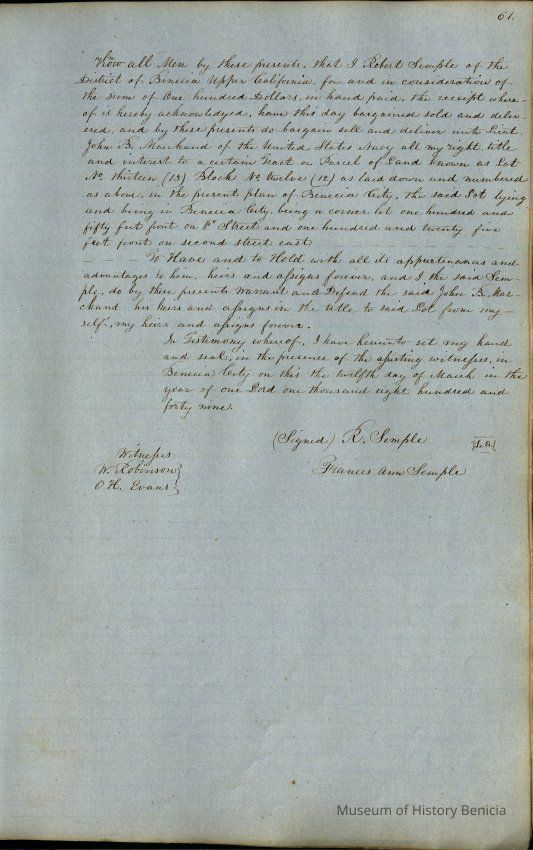 61.
Know all Men by these presents, that I Robert Semple of the
District of Benicia Upper California, for and in consideration of
the sum of One hundred Dollars, in hand paid, the receipt where-
of is hereby acknowledged, have this day bargained sold and deliv-
ered, and by these presents do bargain sell and deliver unto Lieut.
John B. Marchand of the United States Navy all my right, title
and interest to a certain Tract or Parcel of Land known as Lot
No. thirteen (13) Block No. twelve (12) as laid down and numbered
as above, in the present plan of Benicia City, the said Lot lying
and being in Benicia City, being a corner lot one hundred and
fifty feet front on Street and one hundred and twenty five
feet front on second street east
To Have and to Hold with all its appurtenances and
advantages to him, heirs and assigns forever, and I the said Sem-
ple, do by these presents Warrant and Defend the said John B. Mar-
chand his heirs and assigns in the title to said Lot from my-
self, my heirs and assigns forever.
In Testimony whereof, I have hereunto set my hand
and seal, in the presence of the witnesses, in
Benicia City on this the twelfth day of March in the
year of our Lord one thousand eight hundred and
forty nine.
(Signed) R. Semple {L.S.}
Witness
W. Robinson} Frances Ann Semple
O. H. Evans}
Museum of History Benicia